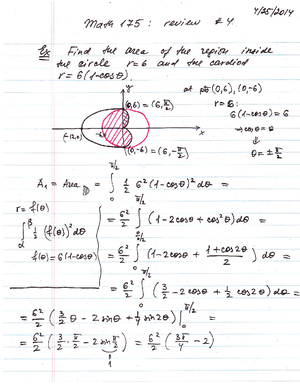 4/25/2014
Math 175: review #4
Ex Find the area of the region inside
the circle r=6 and the cardioid
r = 6(1-cosθ).
at pts (0,6), (0,-6)
y
(0,6) = (6, π/2)
r = 6:
6(1-cosθ) = 6
⇒ cosθ = 0
⇓
θ = ± π/2
(-12,0)
-6
x
(0,-6) = (6, -π/2)
A₁ = Area = ∫₀^{π/2} ½ 6²(1-cosθ)² dθ =
r = f(θ)
∫_α^β ½ (f(θ))² dθ
f(θ) = 6(1-cosθ)
= 6²/2 ∫₀^{π/2} (1-2cosθ + cos²θ) dθ =
= 6²/2 ∫₀^{π/2} (1-2cosθ + (1+cos2θ)/2) dθ =
= 6²/2 ∫₀^{π/2} (3/2 - 2cosθ + ½ cos2θ) dθ =
= 6²/2 (3/2 θ - 2 sinθ + ¼ sin2θ) |₀^{π/2} =
= 6²/2 (3/2 · π/2 - 2 sin π/2) = 6²/2 (3π/4 - 2)
1